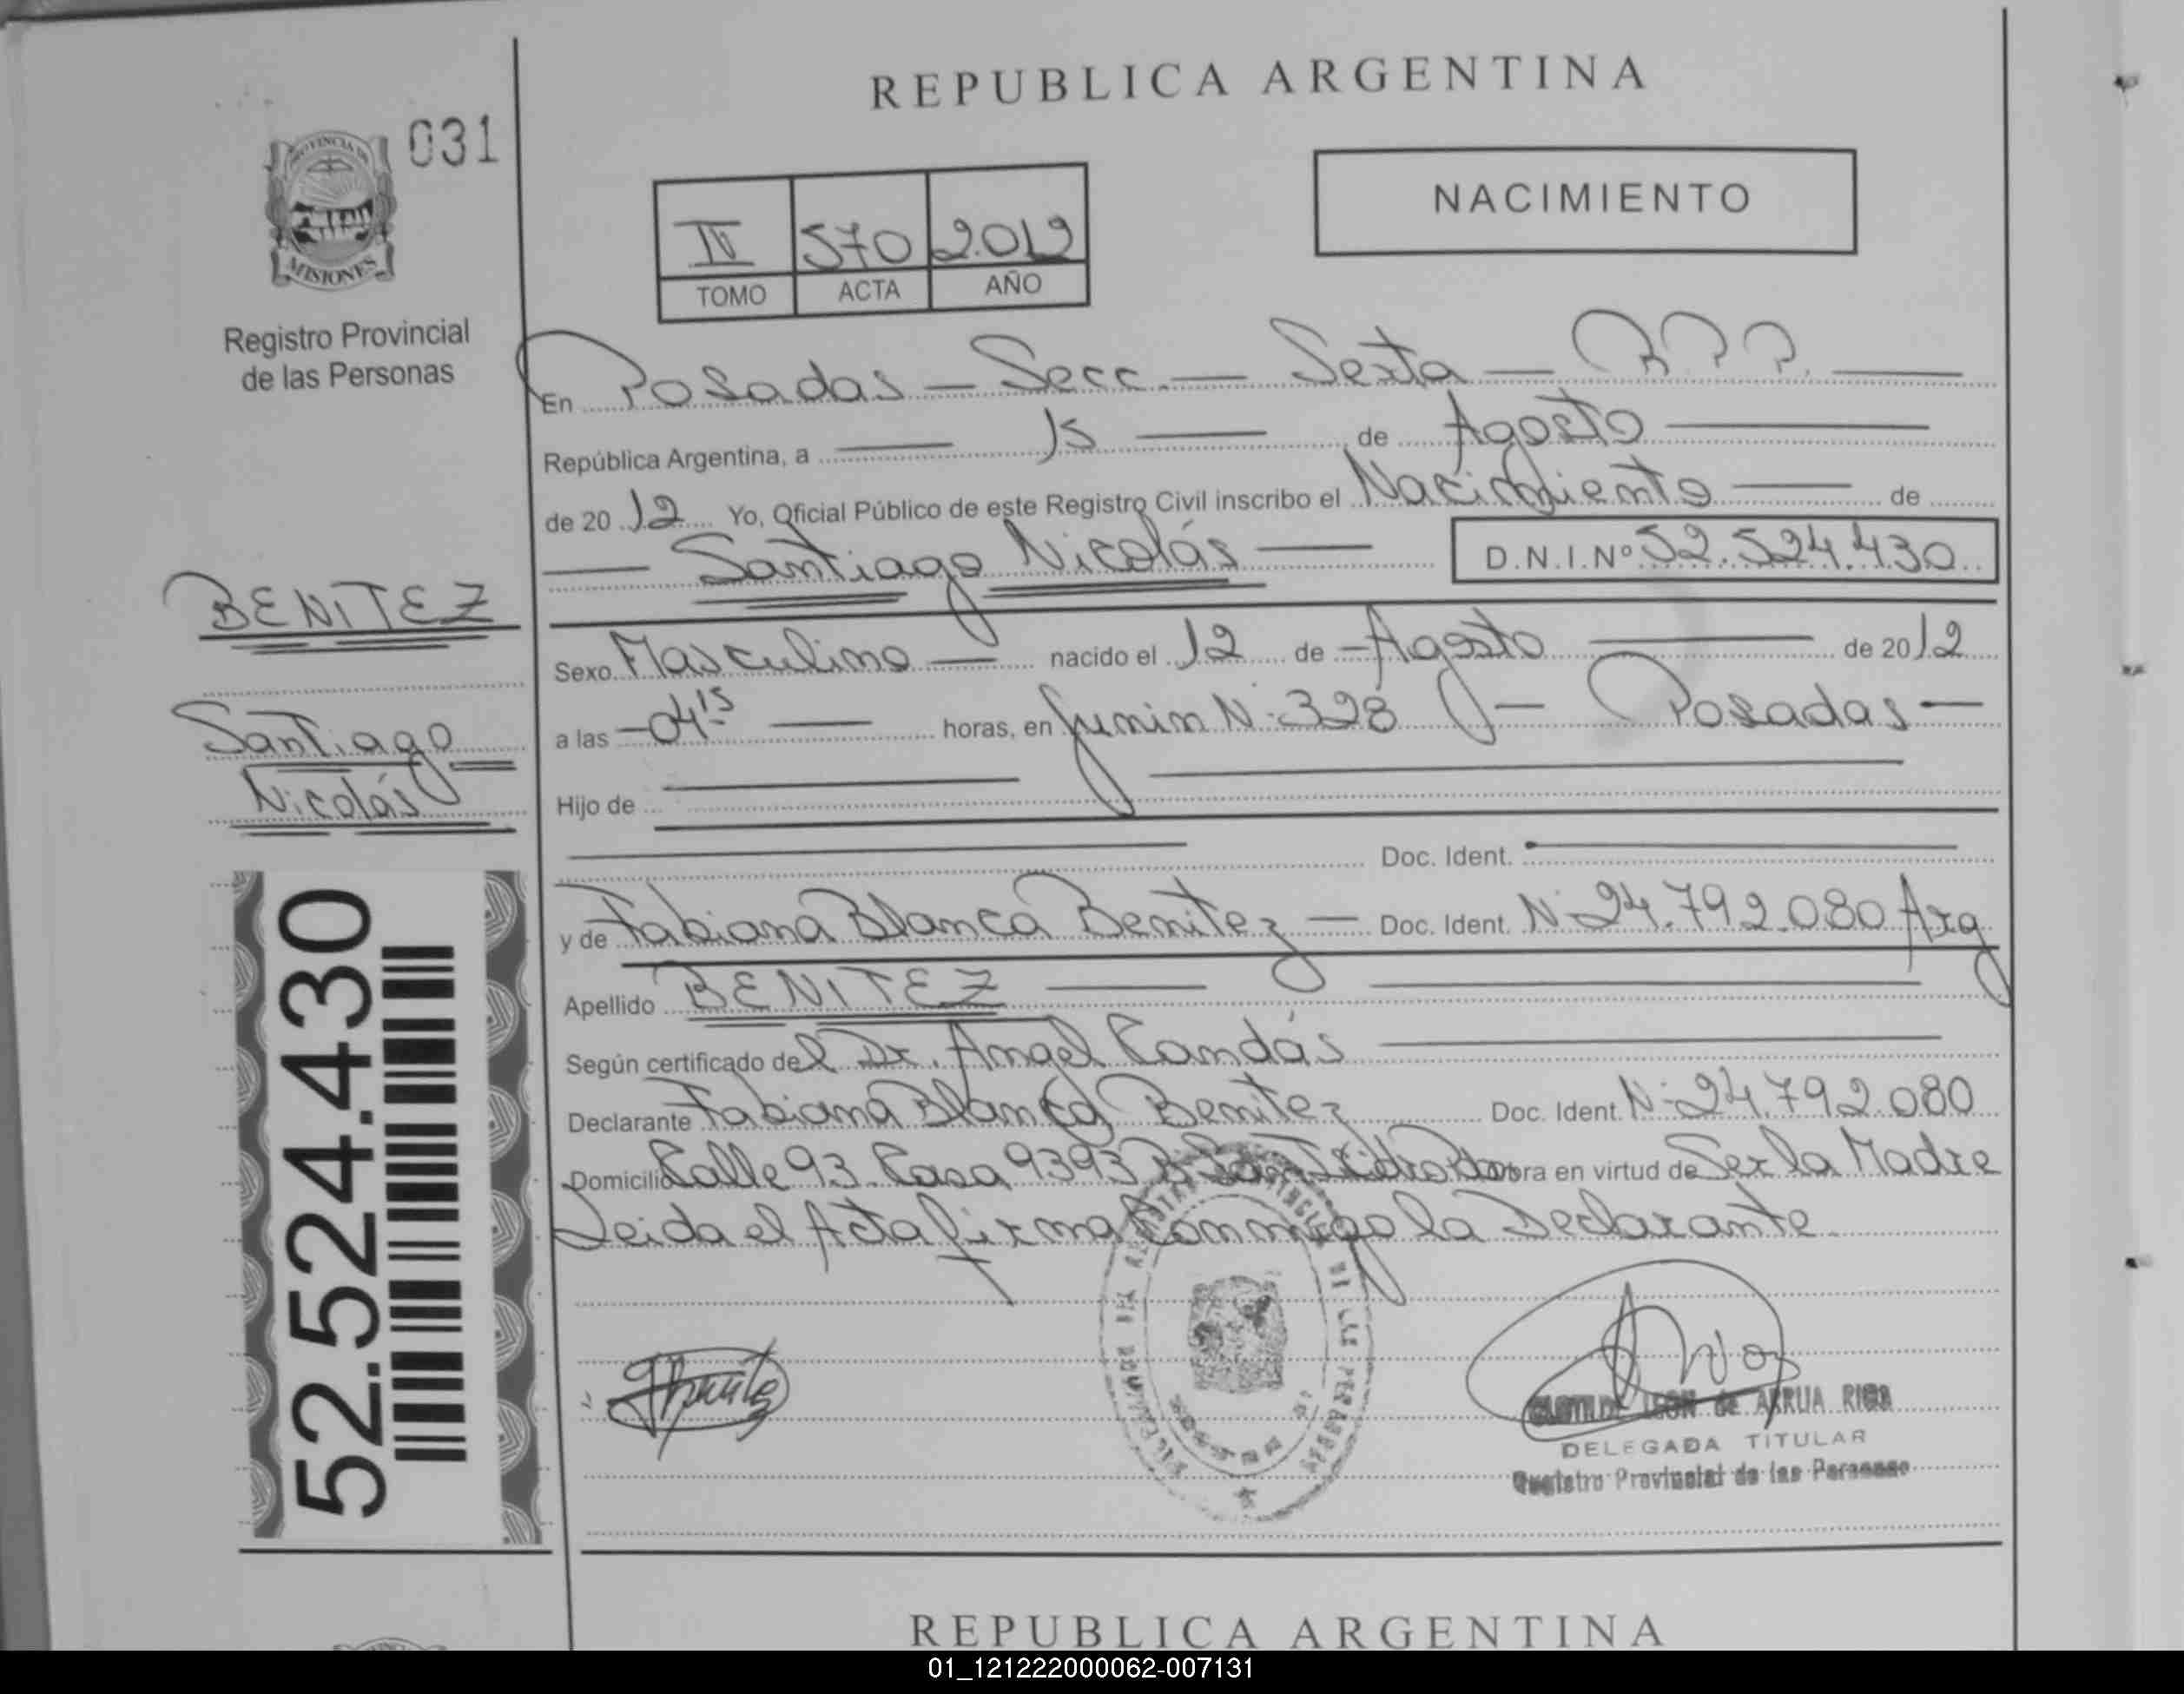 REPUBLICA ARGENTINA
031
PROVINCIA DE
MISIONES
Registro Provincial
de las Personas
NACIMIENTO
IV 570 2.012
TOMO ACTA AÑO
En Posadas — Secc. — Sexta — R.P.P. —
República Argentina, a — 15 — de Agosto —
de 2012 Yo, Oficial Público de este Registro Civil inscribo el Nacimiento — de
— Santiago Nicolás — D.N.I.Nº 52.524.430
BENITEZ
Santiago
Nicolás
Sexo Masculino — nacido el 12 de — Agosto — de 2012
a las — 04.15 — horas, en Junin N: 328 — Posadas —
Hijo de
Doc. Ident.
y de Fabiana Blanca Benitez — Doc. Ident. N: 24.792.080 Arg
Apellido BENITEZ —
Según certificado del Dr. Angel Candás
Declarante Fabiana Blanca Benitez Doc. Ident. N: 24.792.080
Domicilio Calle 93 Casa 9393 B San Isidro Pdas obra en virtud de Ser la Madre
Leida el Acta firma conmigo la Declarante
52.524.430
CLOTILDE LEON de ARRUA
DELEGADA TITULAR
Registro Provincial de las Personas
REPUBLICA ARGENTINA
01_121222000062-007131